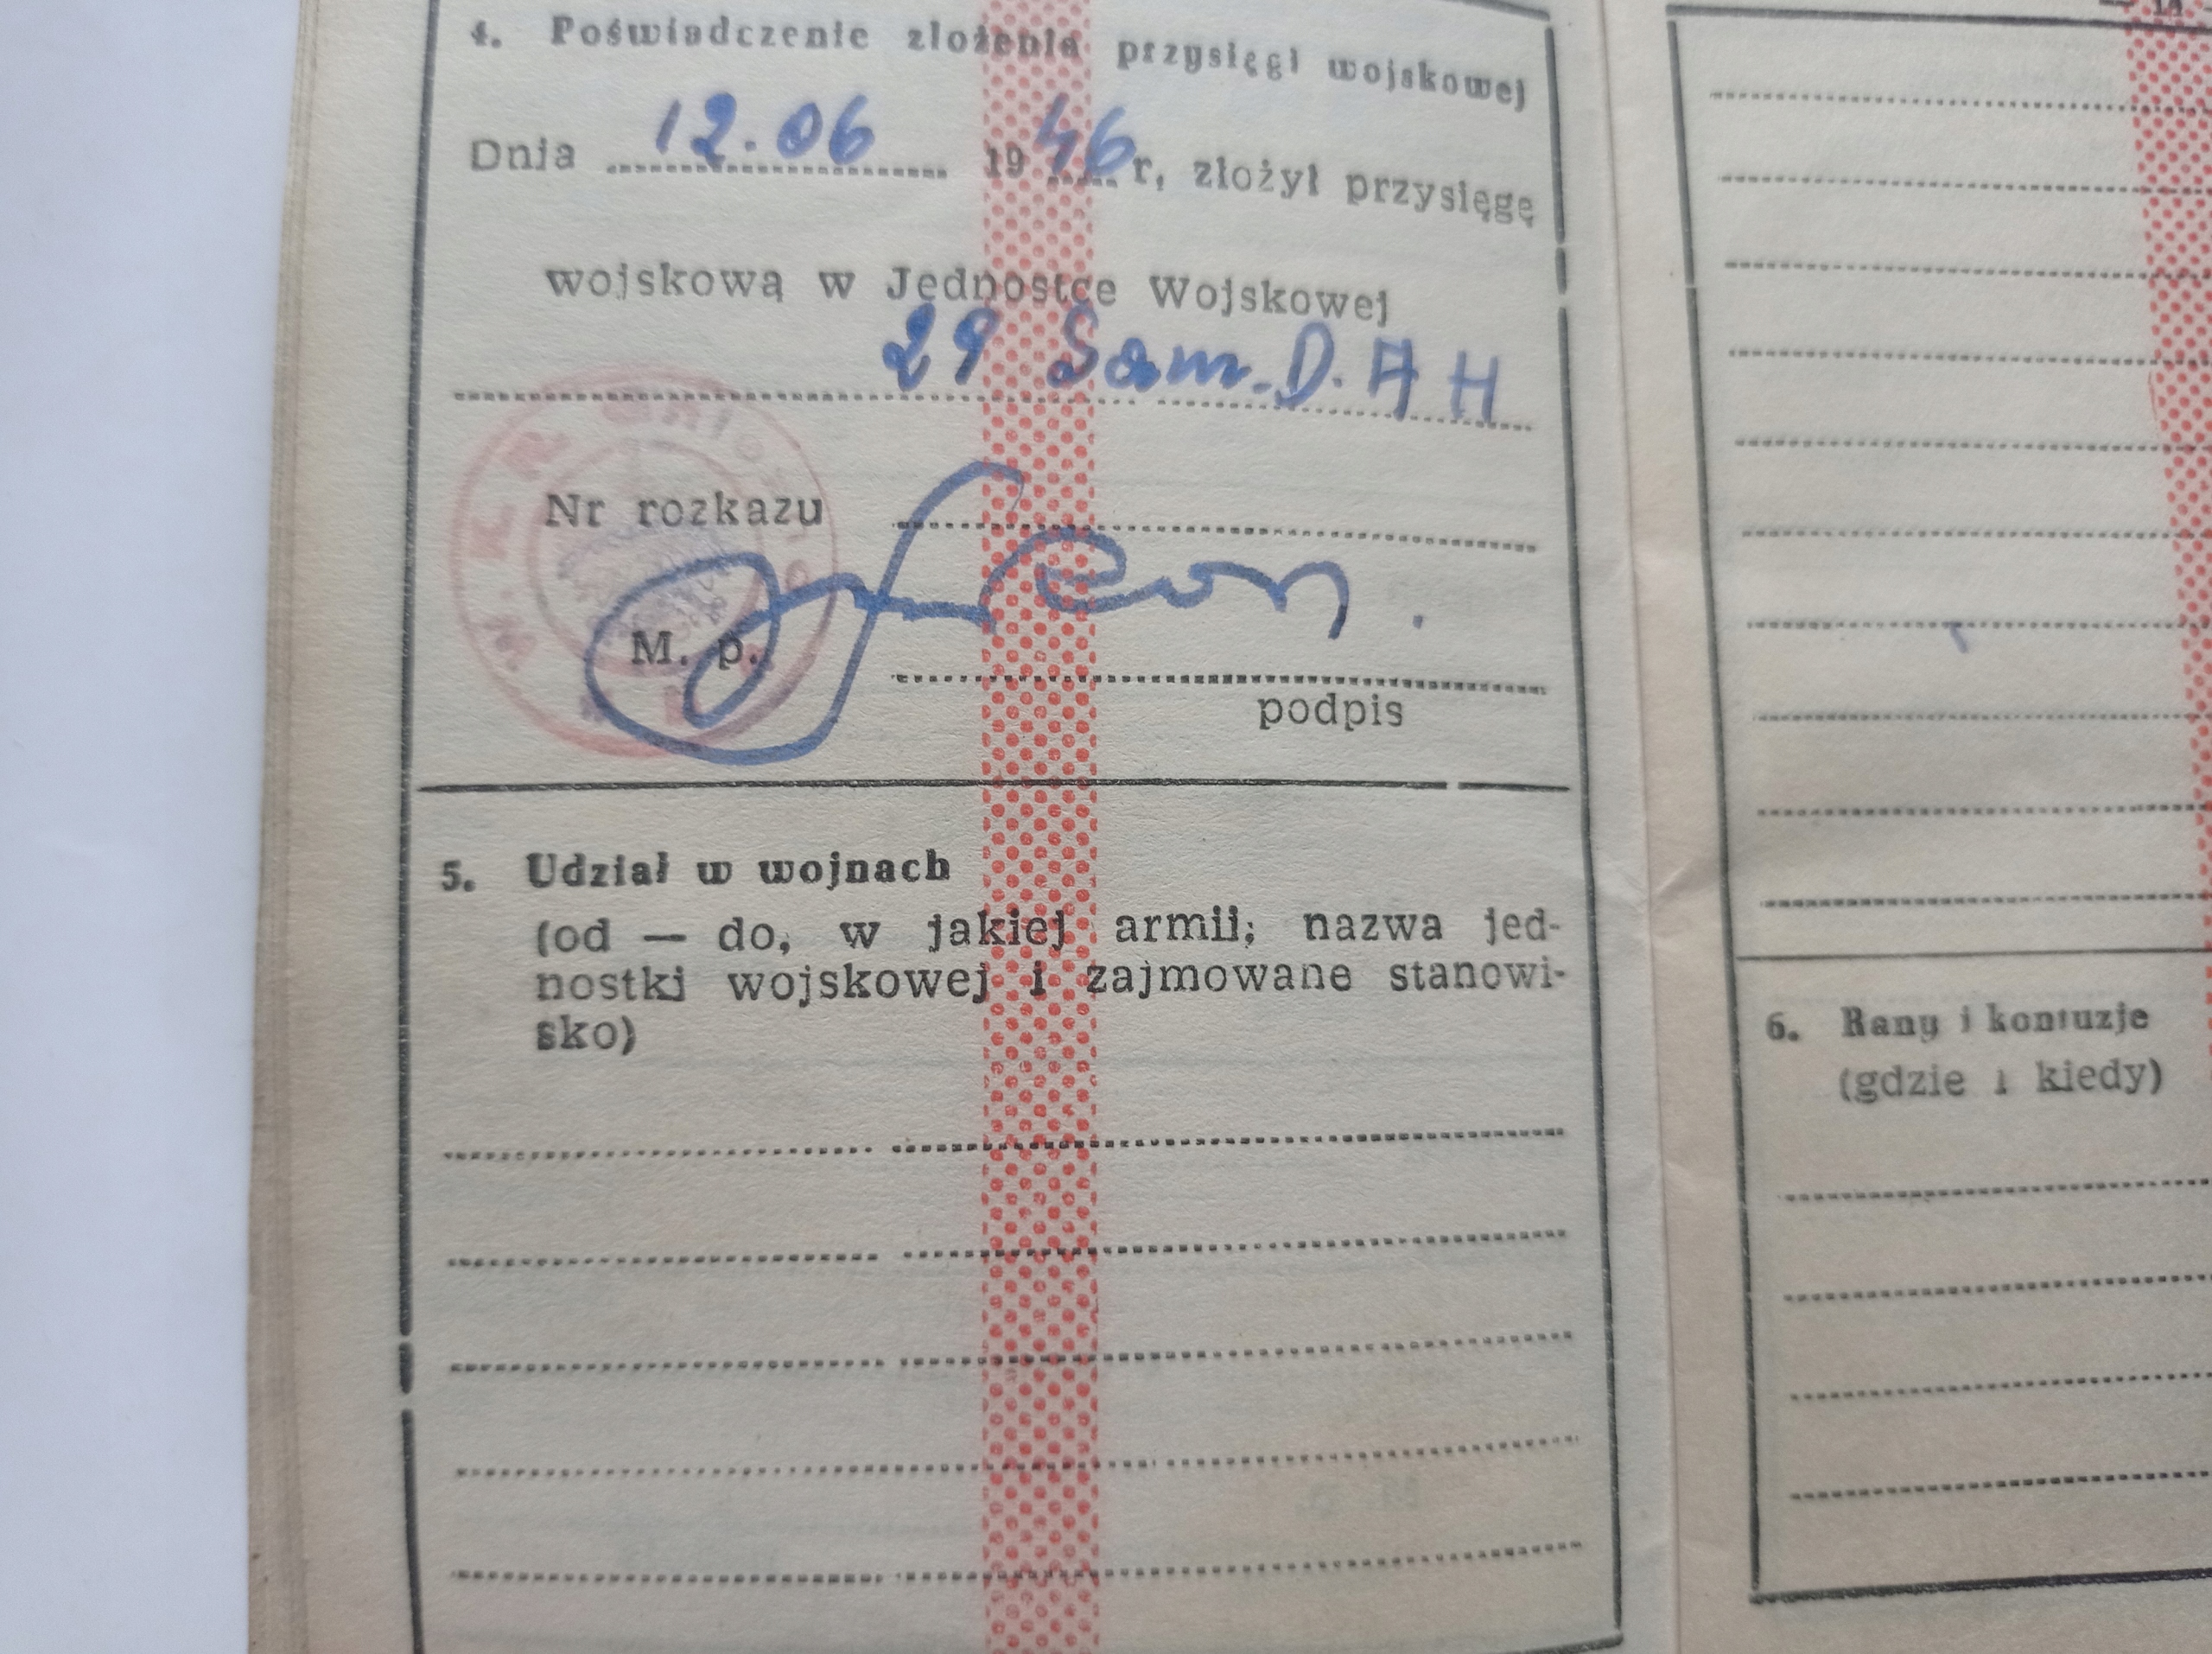 4. Poświadczenie złożenia przysięgi wojskowej
Dnia 12.06 1946 r, złożył przysięgę
wojskową w Jednostce Wojskowej
29 Sam. D. A H
Nr rozkazu
M. p.
podpis
5. Udział w wojnach
(od — do, w jakiej armii; nazwa jed-
nostki wojskowej i zajmowane stanowi-
sko)
W. K. R.
6. Rany i kontuzje
(gdzie i kiedy)